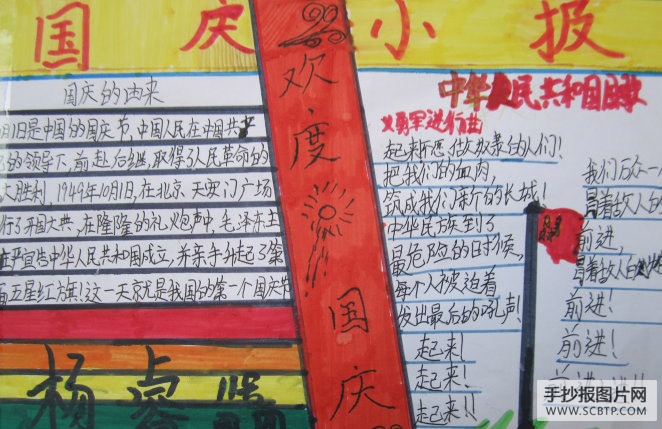 国庆小报
国庆的由来
月1日是中国的国庆节,中国人民在中国共产
的领导下,前赴后继,取得了人民革命的
大胜利,1949年10月1日,在北京天安门广场
行了开国大典,在隆隆的礼炮声中,毛泽东主
庄严宣告中华人民共和国成立,并亲手升起了第
面五星红旗!这一天就是我国的第一个国庆节
杨睿
欢度国庆
中华人民共和国国歌
义勇军进行曲
起来!不愿做奴隶的人们!
把我们的血肉,
筑成我们新的长城!
中华民族到了
最危险的时候,
每个人被迫着
发出最后的吼声!
起来!
起来!
起来!!
我们万众一
冒着敌人的
前进,
冒着敌人的
前进!
前进!
手抄报图片网
WWW.SCBTP.COM